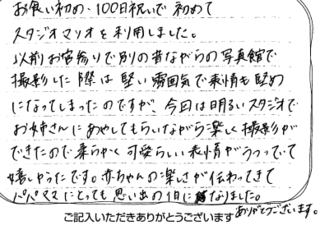 お食い初め・100日祝いで初めて
スタジオマリオを利用しました。
以前お宮参りで別の昔ながらの写真館で
撮影した際は堅い雰囲気で表情も堅め
になってしまったのですが、今回は明るいスタジオで
お姉さんにあやしてもらいながら楽しく撮影が
できたので柔らかく可愛らしい表情がうつっていて
嬉しかったです。赤ちゃんの楽しさが伝わってきて
パパママにとっても思い出の1日になりました。
ありがとうございます。
ご記入いただきありがとうございます